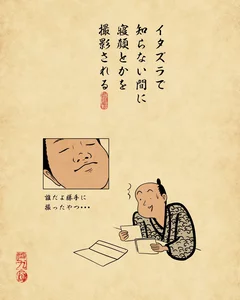 イタズラで
知らない間に
寝顔とかを
撮影される
誰だよ勝手に
撮ったやつ・・・